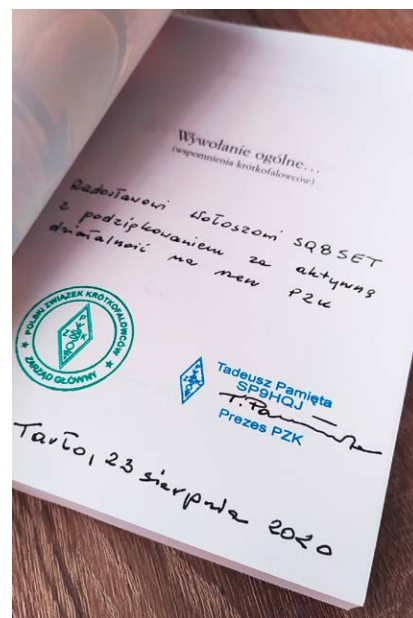 Wywołanie ogólne...
(wspomnienia krótkofalowców)
Radosławowi Wołoszowi SQ8SET
z podziękowaniem za aktywną
działalność na rzecz PZK
POLSKI ZWIĄZEK KRÓTKOFALOWCÓW
ZARZĄD GŁÓWNY
PZK
Tadeusz Pamięta
SP9HQJ
Prezes PZK
Tarło, 23 sierpnia 2020